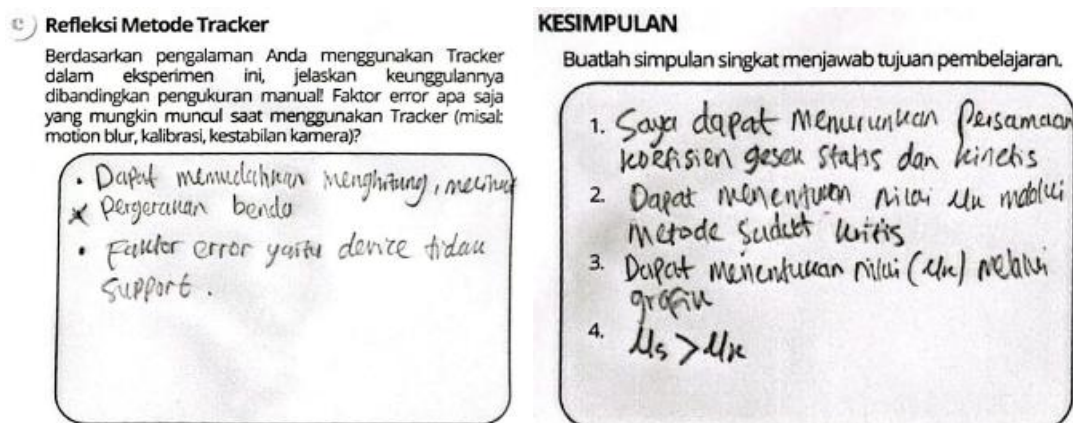 e Refleksi Metode Tracker
Berdasarkan pengalaman Anda menggunakan Tracker
dalam eksperimen ini, jelaskan keunggulannya
dibandingkan pengukuran manual! Faktor error apa saja
yang mungkin muncul saat menggunakan Tracker (misal:
motion blur, kalibrasi, kestabilan kamera)?
• Dapat memudahkan menghitung, melihat
Pergerakan benda
• Faktor error yaitu device tidak
support.
KESIMPULAN
Buatlah simpulan singkat menjawab tujuan pembelajaran.
1. Saya dapat menurunkan Persamaan
koefisien gesek statis dan kinetis
2. Dapat menentukan nilai μk melalui
metode sudut kritis
3. Dapat menentukan nilai (μk) melalui
grafik
4. μs > μk